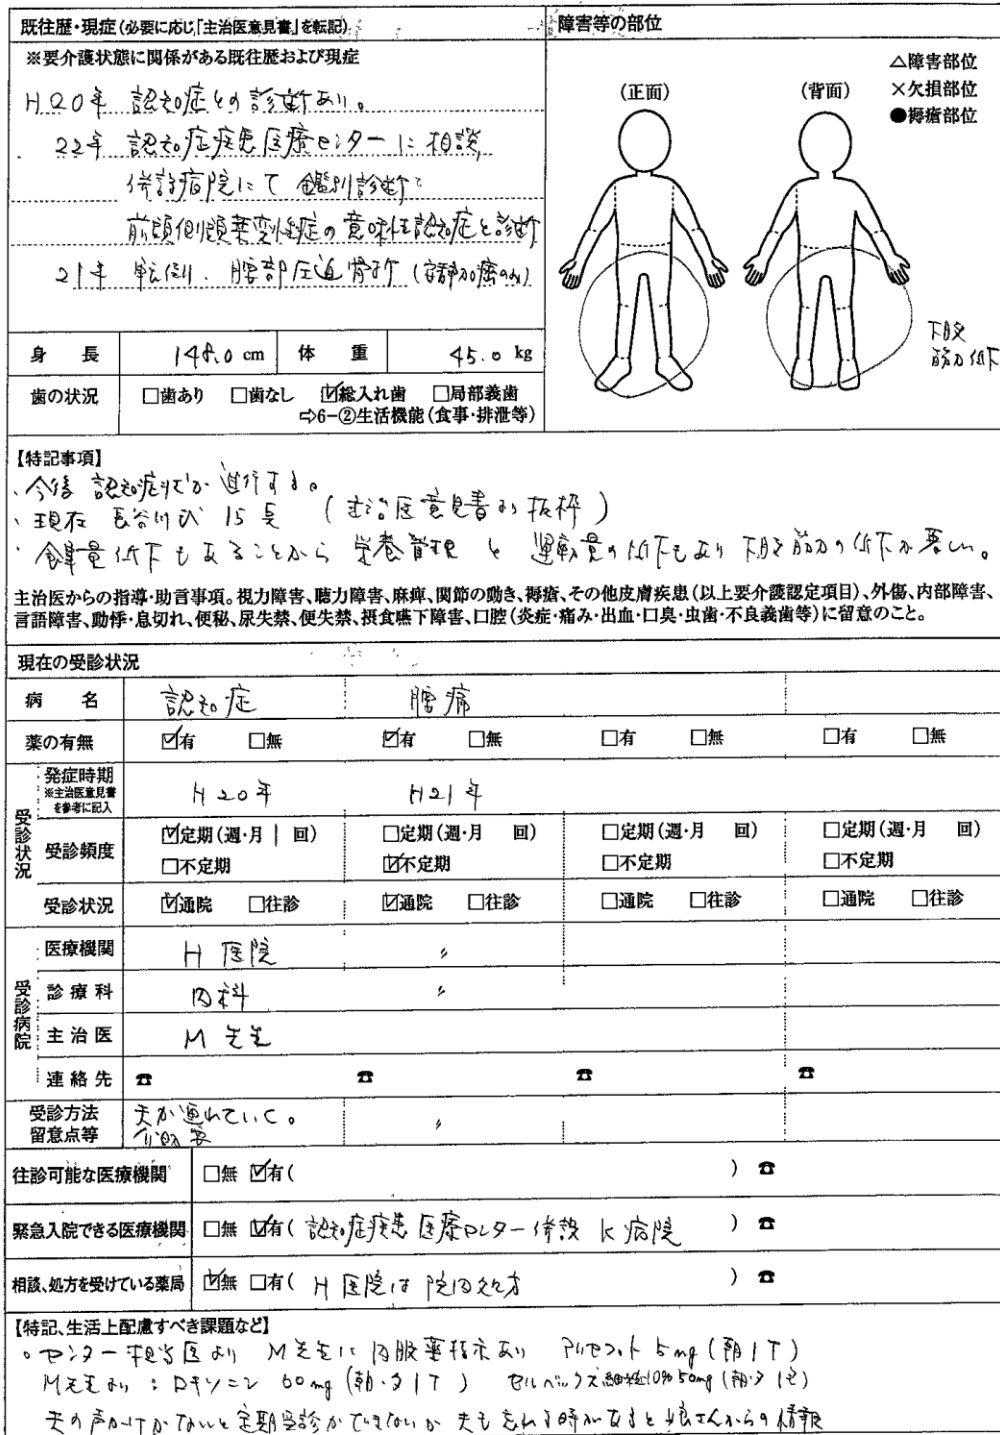 既往歴・現症(必要に応じ「主治医意見書」を転記)
障害等の部位
※要介護状態に関係がある既往歴および現症
△障害部位
×欠損部位
●褥瘡部位
(正面)
(背面)
H20年 認知症との診断あり。
22年 認知症疾患医療センターに相談
併設病院にて 鑑別診断で
前頭側頭葉変性症の意味性認知症と診断
21年 転倒り、腰部圧迫骨折(安静加療のみ)
下肢
筋力低下
身長 148.0 cm 体重 45.0 kg
歯の状況 □歯あり □歯なし ☑総入れ歯 □局部義歯
⇨6-②生活機能(食事・排泄等)
【特記事項】
・今後 認知症状が進行する。
・現在 長谷川式 15点 (主治医意見書より抜粋)
・食事量低下もあることから 栄養管理と 運動量の低下もあり 下肢筋力の低下が悪い。
主治医からの指導・助言事項。視力障害、聴力障害、麻痺、関節の動き、褥瘡、その他皮膚疾患(以上要介護認定項目)、外傷、内部障害、
言語障害、動悸・息切れ、便秘、尿失禁、便失禁、摂食嚥下障害、口腔(炎症・痛み・出血・口臭・虫歯・不良義歯等)に留意のこと。
現在の受診状況
病名 認知症 腰痛
薬の有無 ☑有 □無 ☑有 □無 □有 □無 □有 □無
受診状況
発症時期
※主治医意見書
を参考に記入
H20年 H21年
受診頻度
☑定期(週・月 1 回) □定期(週・月 回) □定期(週・月 回) □定期(週・月 回)
□不定期 ☑不定期 □不定期 □不定期
受診状況 ☑通院 □往診 ☑通院 □往診 □通院 □往診 □通院 □往診
受診病院
医療機関 H 医院 〃
診療科 内科 〃
主治医 M 先生
連絡先 ☎ ☎ ☎ ☎
受診方法
留意点等
夫が連れていく。
介助要 〃
往診可能な医療機関 □無 ☑有( ) ☎
緊急入院できる医療機関 □無 ☑有(認知症疾患医療センター併設 K病院 ) ☎
相談、処方を受けている薬局 ☑無 □有( H医院は 院内処方 ) ☎
【特記、生活上配慮すべき課題など】
○センター担当医より M先生に 内服薬指示あり アリセプト 5mg(朝1T)
M先生より:ロキソニン 60mg(朝・夕1T) セルベックス細粒10% 50mg(朝・夕1包)
夫の声かけがないと定期受診ができないが 夫も忘れる時があると娘さんからの情報